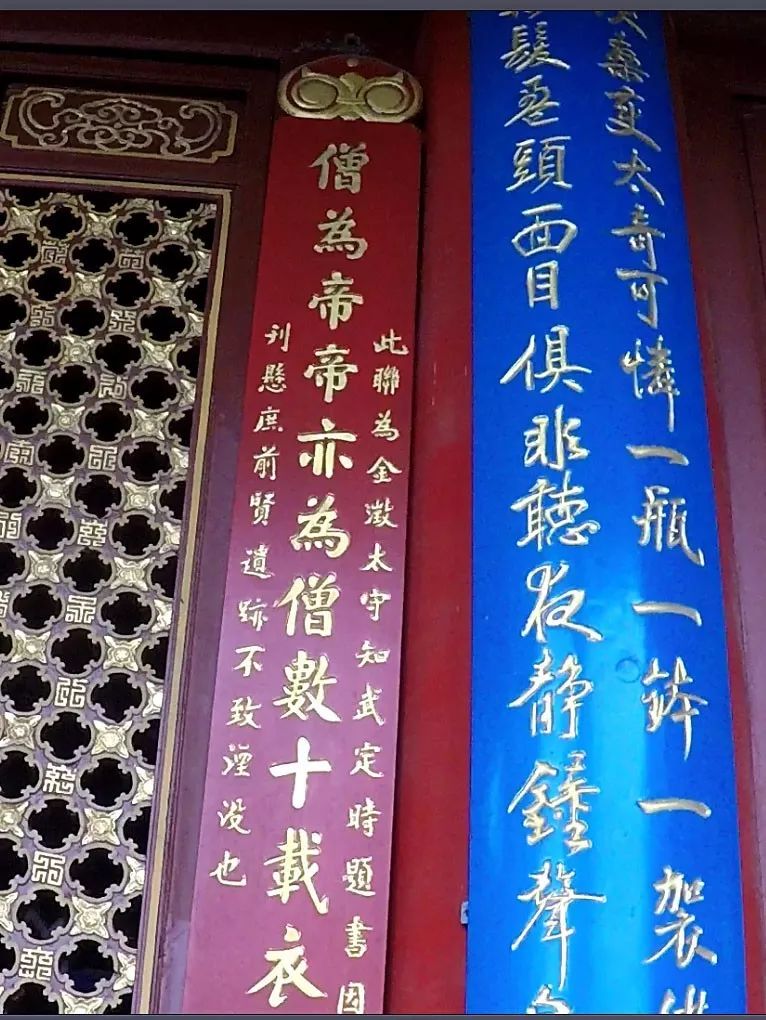 桑变太奇可憐一瓶一鉢一袈
髮盈頭面目俱非聽夜靜鐘聲
此聯為金澂太守知武定時題書因
僧為帝帝亦為僧數十載衣
刊懸庶前賢遺跡不致湮没也